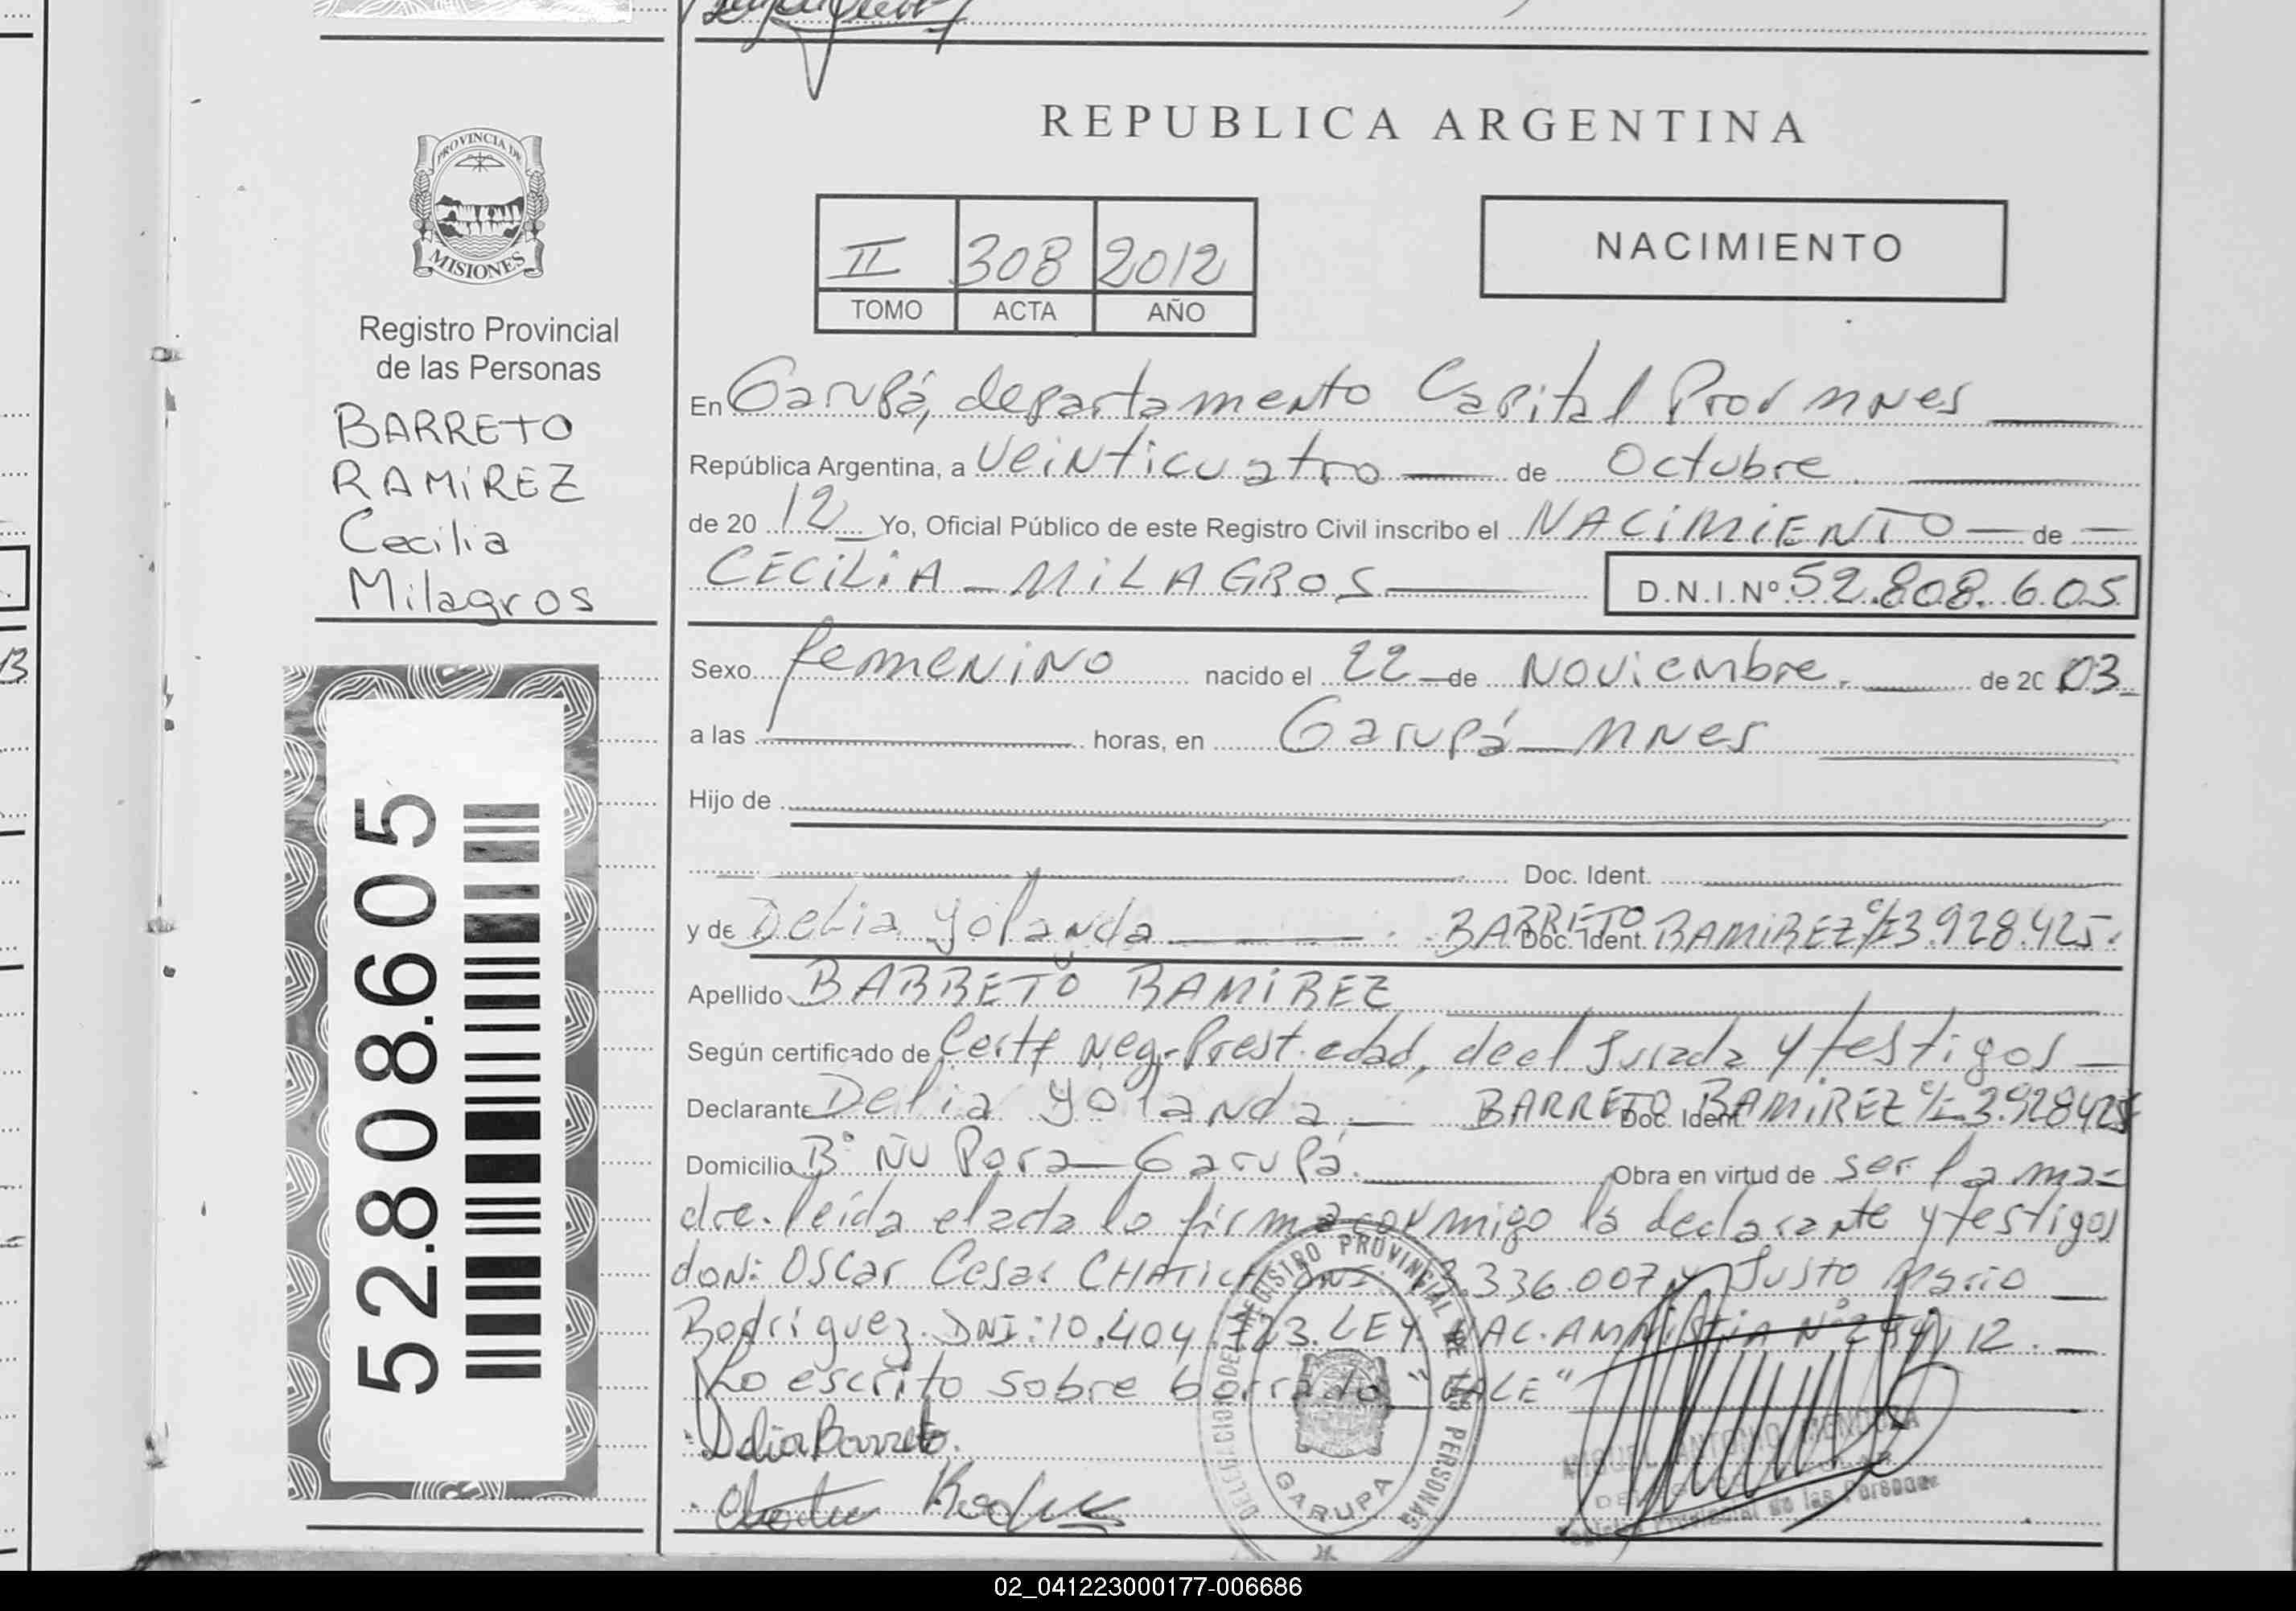 REPUBLICA ARGENTINA
PROVINCIA DE
MISIONES
Registro Provincial
de las Personas
BARRETO
RAMIREZ
Cecilia
Milagros
52.808.605
II 308 2012
TOMO ACTA AÑO
NACIMIENTO
En Garupá, departamento Capital Prov mnes
República Argentina, a veinticuatro de Octubre
de 20 12 Yo, Oficial Público de este Registro Civil inscribo el NACIMIENTO de
CECILIA MILAGROS D.N.I.Nº 52.808.605
Sexo femenino nacido el 22 de Noviembre de 20 03
a las horas, en Garupá mnes
Hijo de
Doc. Ident.
y de Delia Yolanda BARRETO RAMIREZ Doc. Ident. C/I 3.928.425.
Apellido BARRETO RAMIREZ
Según certificado de Certf Neg. Prest. edad, decl Jurada y testigos
Declarante Delia Yolanda BARRETO RAMIREZ Doc. Ident. C/I 3.928425
Domicilio Bº Ñu Pora Garupá. Obra en virtud de ser la ma-
dre. leída el acta lo firma conmigo la declarante y testigos
don: Oscar Cesar DNI. 336.007 y Justo Mario
Rodríguez. DNI: 10.404. 23. LEY NAC. AMNISTIA Nº 12.
Lo escrito sobre borrado "VALE"
Delia Barreto.
DELEGACION DEL REGISTRO PROVINCIAL DE LAS PERSONAS
GARUPA
MIGUEL ANTONIO MENDOZA
Registro Provincial de las Personas
02_041223000177-006686